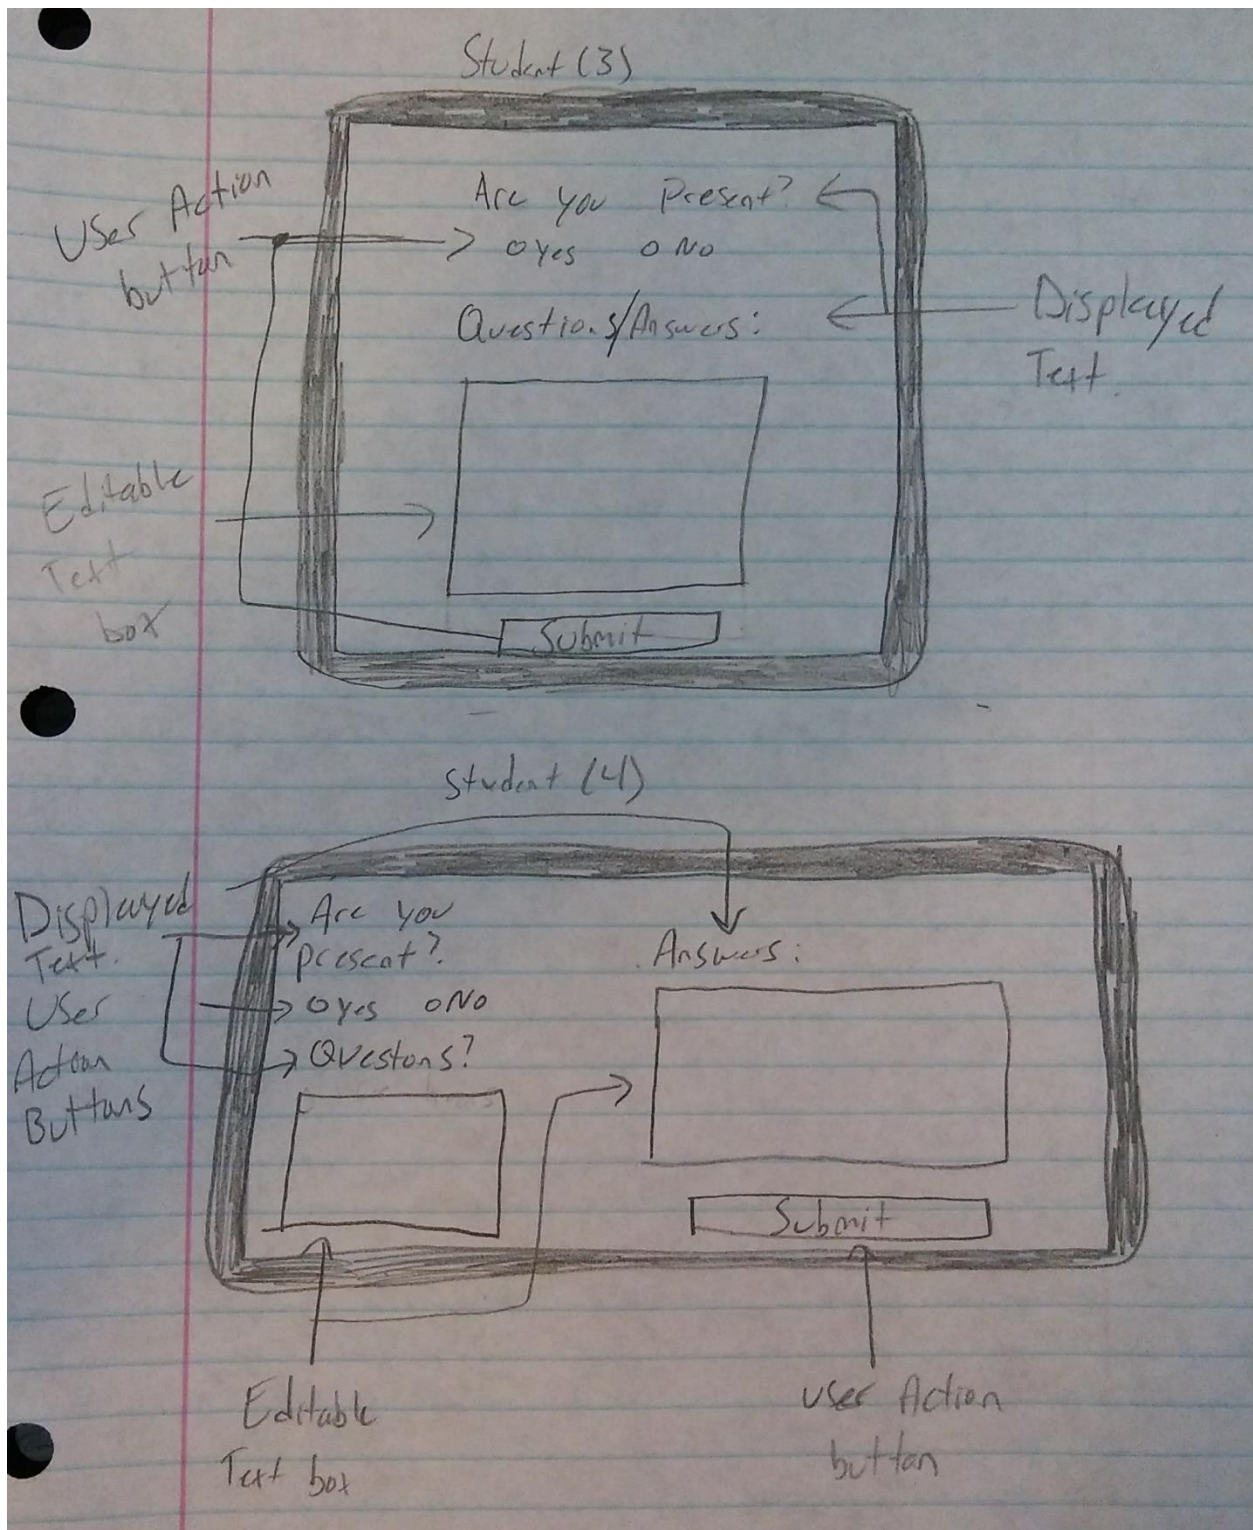 Student (3)
User Action
button
Are you Present?
O Yes O No
Questions/Answers:
Displayed
Text.
Editable
Text
box
Submit
Student (4)
Displayed
Text.
User
Action
Buttons
Are you
present?
O Yes O No
Questons?
Answers:
Submit
Editable
Text box
User Action
button